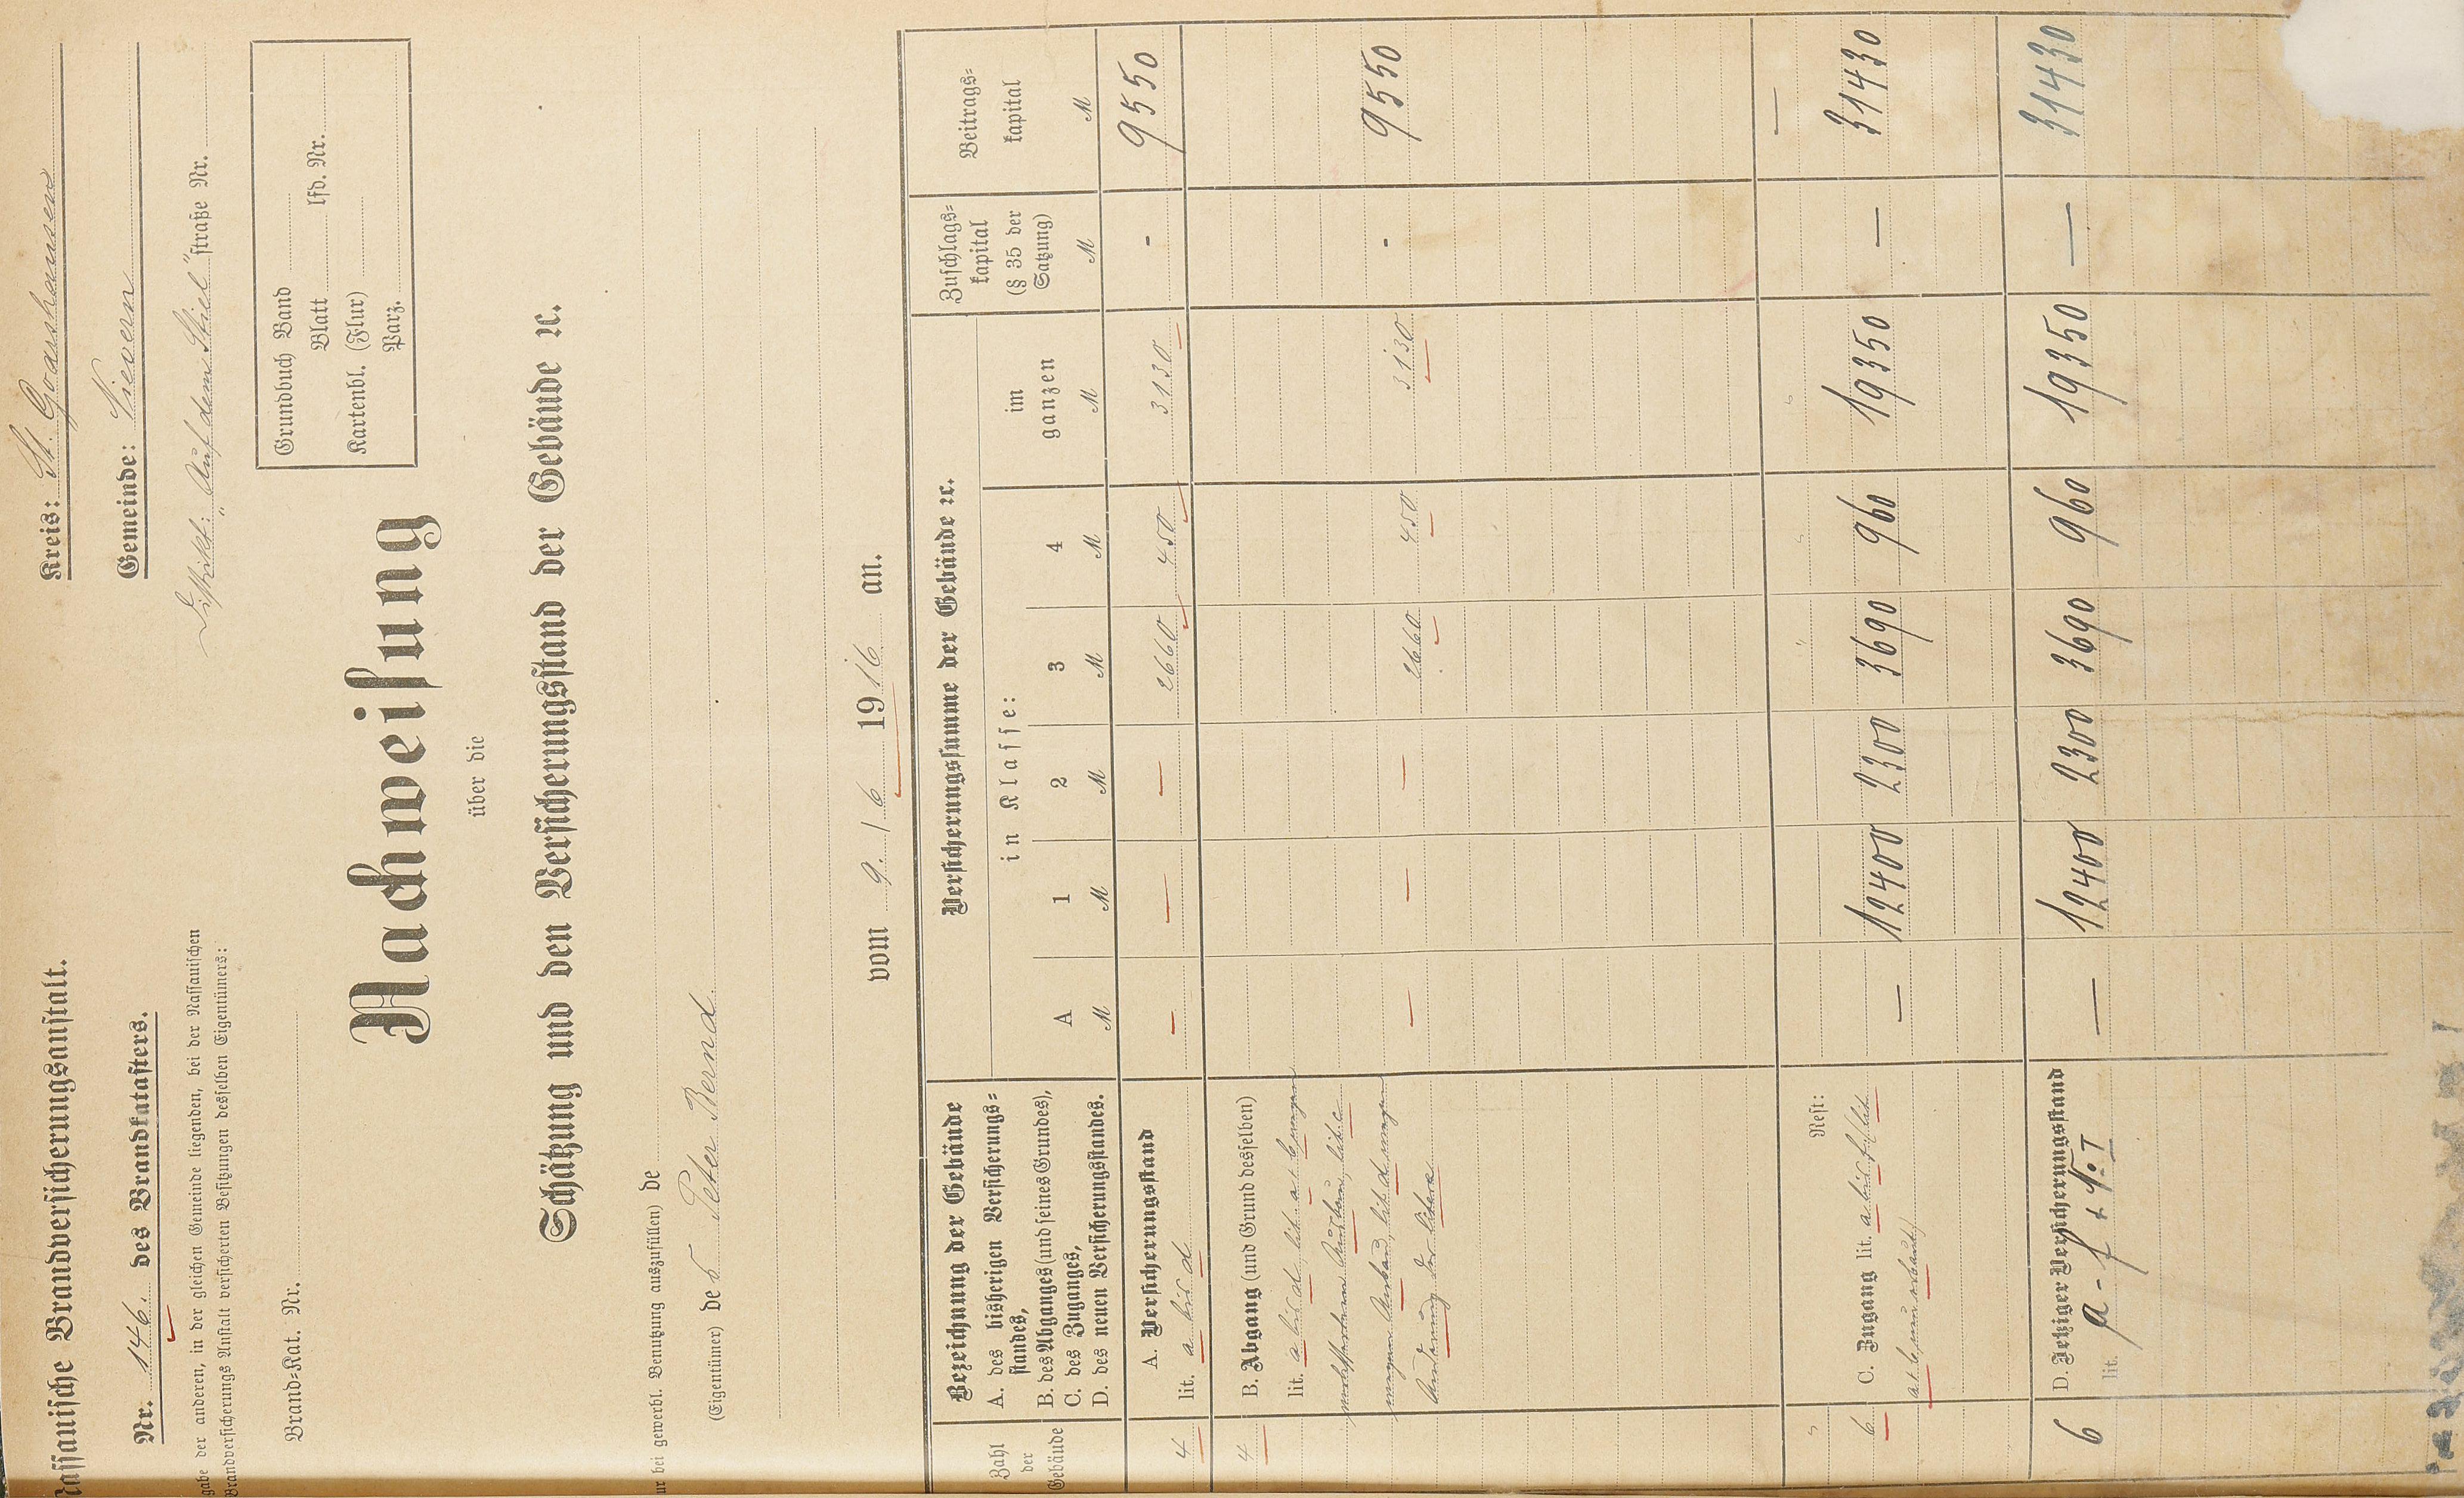 Nassauische Brandversicherungsanstalt.
Nr. 146. des Brandkatasters.
gabe der anderen, in der gleichen Gemeinde liegenden, bei der Nassauischen
Brandversicherungs Anstalt versicherten Besitzungen desselben Eigentümers:
Brand=Kat. Nr.
Kreis: St. Goarshausen
Gemeinde: Nievern
Distrikt: "Auf dem Stiel" straße Nr.
Grundbuch Band
Blatt lfd. Nr.
Kartenbl. (Flur)
Parz.
Nachweisung
über die
Schätzung und den Versicherungsstand der Gebäude ꝛc.
ur bei gewerbl. Benutzung auszufüllen) de
(Eigentümer) des Peter Bernd.
vom 9./6 1916 an.
Zahl der Gebäude
Bezeichnung der Gebäude
A. des bisherigen Versicherungs=
standes,
B. des Abganges (und seines Grundes),
C. des Zuganges,
D. des neuen Versicherungsstandes.
Versicherungssumme der Gebäude ꝛc.
in Klasse:
A 1 2 3 4
im ganzen
Zuschlags=
kapital
(§ 35 der
Satzung)
Beitrags=
kapital
M M M M M M M M
A. Versicherungsstand
4 lit. a bis d — — — 2660 450 3130 - 9550
B. Abgang (und Grund desselben)
4 lit. a bis d, lit. a & b wegen
Ausbau, lit. c
wegen Anbau, lit. d wegen
Änderung der litera — — — 2660 450 3130 - 9550
Rest: —
C. Zugang lit. a bis f, lit.
6 — 12400 2300 3690 960 19350 — 31430
a & b neu erbaut
D. Jetziger Versicherungsstand
6 lit. a - f — 12400 2300 3690 960 19350 — 31430